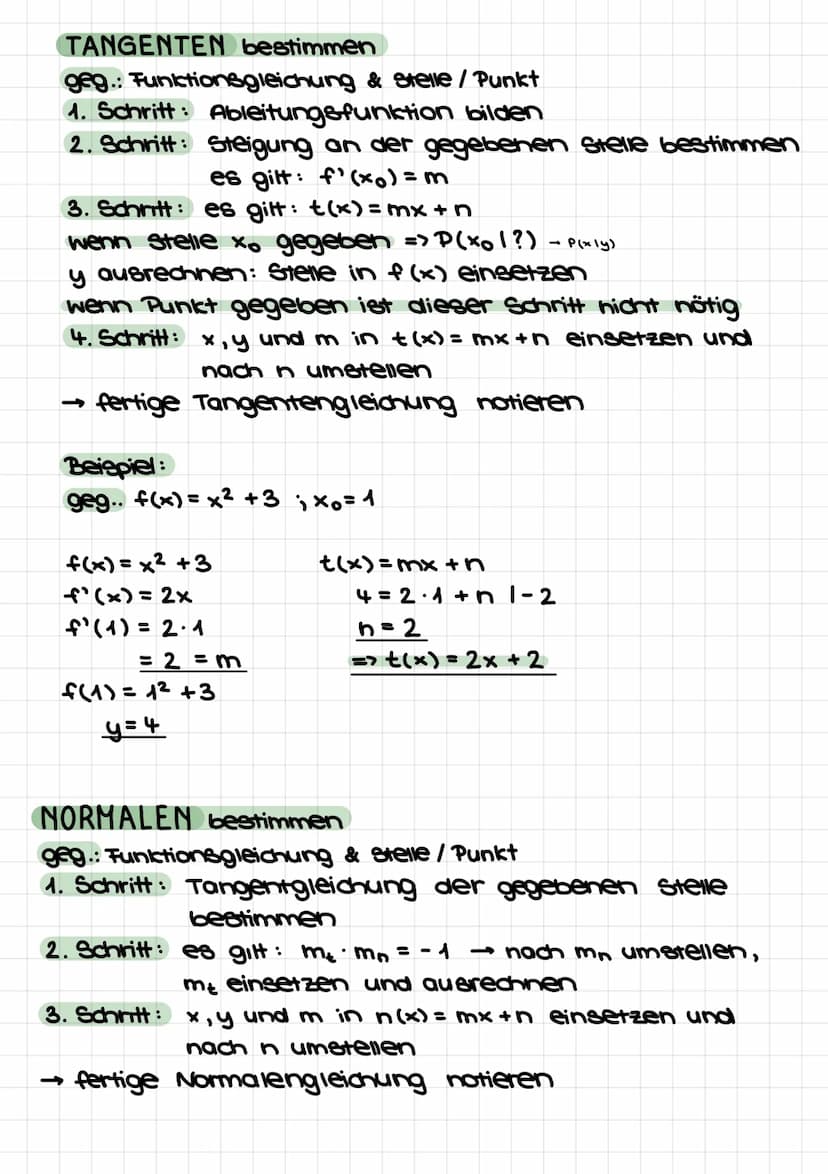 TANGENTEN bestimmen
geg.: Funktionsgleichung & Stelle / Punkt
1. Schritt: Ableitungsfunktion bilden
2. Schritt: Steigung an der gegebenen Stelle bestimmen
es gilt: f'(x₀) = m
3. Schritt: es gilt: t(x) = mx + n
wenn Stelle x₀ gegeben => P(x₀ | ?) → P(x|y)
y ausrechnen: Stelle in f(x) einsetzen
wenn Punkt gegeben ist dieser Schritt nicht nötig
4. Schritt: x, y und m in t(x) = mx + n einsetzen und
nach n umstellen
→ fertige Tangentengleichung notieren
Beispiel:
geg.. f(x) = x² + 3 ; x₀ = 1
f(x) = x² + 3
f'(x) = 2x
f'(1) = 2 · 1
= 2 = m
f(1) = 1² + 3
y = 4
t(x) = mx + n
4 = 2 · 1 + n | - 2
n = 2
=> t(x) = 2x + 2
NORMALEN bestimmen
geg.: Funktionsgleichung & Stelle / Punkt
1. Schritt: Tangentgleichung der gegebenen Stelle
bestimmen
2. Schritt: es gilt: mₜ · mₙ = - 1 → nach mₙ umstellen,
mₜ einsetzen und ausrechnen
3. Schritt: x, y und m in n(x) = mx + n einsetzen und
nach n umstellen
→ fertige Normalengleichung notieren